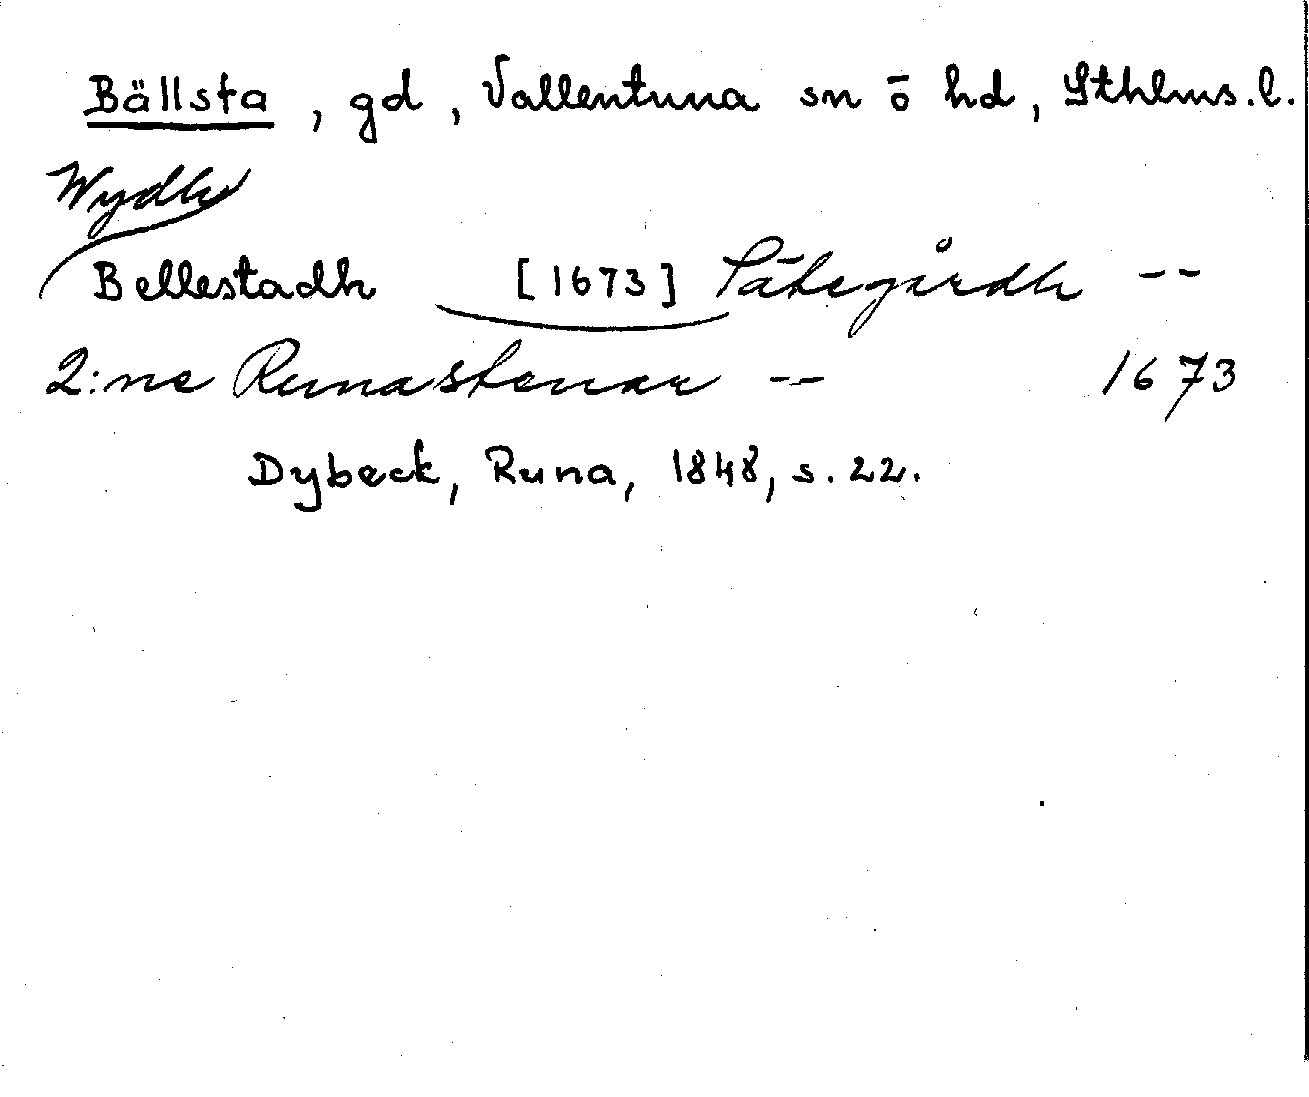 Bällsta, gd, Vallentuna sn ō hd, Sthlms. l.
Wydh
Bellestadh [1673] Sätegårdh --
2:ne Runastenar -- 1673
Dybeck, Runa, 1848, s. 22.